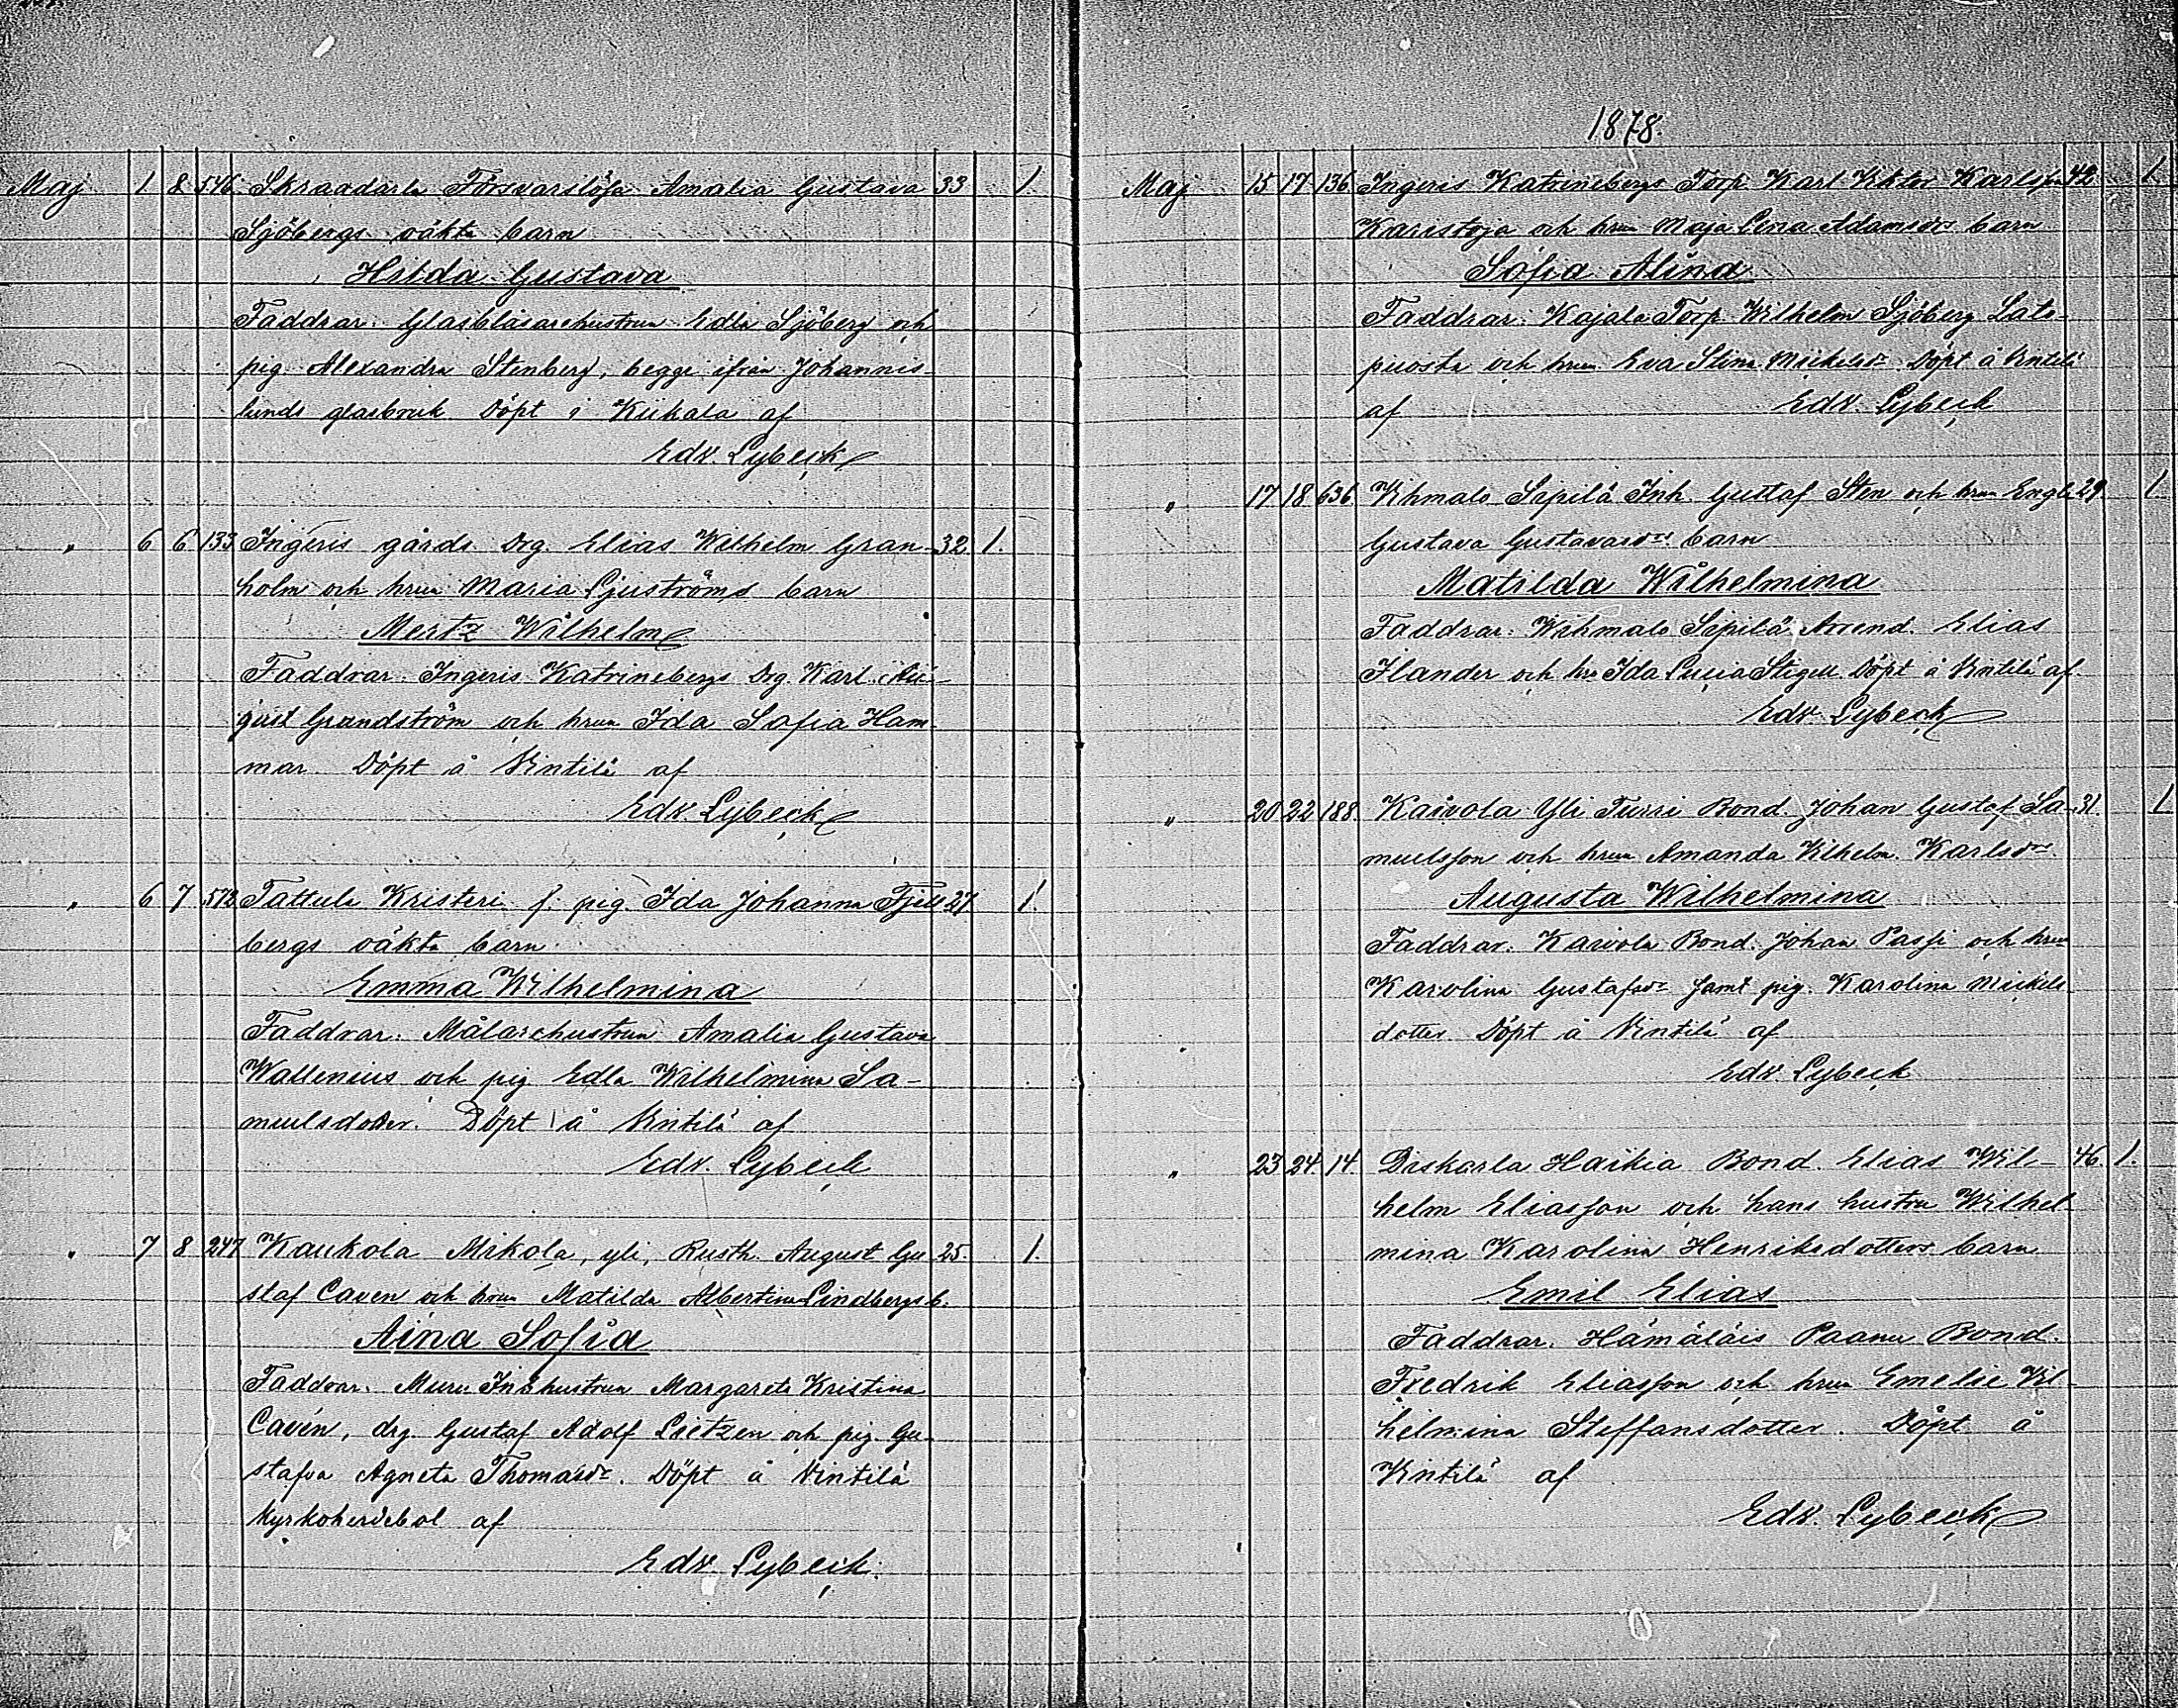 Maj 1 8 546. Skraadarla Försvarslösa Amalia Gustava 33 1.
Sjöbergs oäkta barn
Hilda Gustava
Faddrar: Glasblåsarehustrun Edla Sjöberg och
pig. Alexandra Stenberg, begge ifrån Johannis-
lunds glasbruk. Döpt i Kiikala af
Edv. Lybeck
" 6 6 133 Ingeris gårds Drg. Elias Wilhelm Gran- 32 1.
holm och hrun Maria Ljuströms barn
Mertz Wilhelm
Faddrar. Ingeris Katrinebergs Drg. Karl Au-
gust Grundström och hrun Ida Sofia Ham-
mar. Döpt å Vintilä af
Edv. Lybeck
" 6 7 572 Tattula Kristeri f. pig. Ida Johanna Fjell- 27. 1.
bergs oäkta barn
Emma Wilhelmina
Faddrar: Målarehustrun Amalia Gustava
Wallenius och pig Edla Wilhelmina Sa-
muelsdotter. Döpt å Vintilä af
Edv. Lybeck
" 7 8 247 Kaukola Mikola, yli, Rusth. August Gu- 25. 1.
staf Caven och hrun Matilda Albertina Lindbergs b.
Aina Sofia
Faddrar. Muru Inhhustrun Margareta Kristina
Cavén, drg Gustaf Adolf Lietzen och pig. Gu-
stafva Agneta Thomasdr. Döpt å Vintilä
Kyrkoherdebol af
Edv. Lybeck.
1878.
Maj 15 17 136 Ingeris Katrinebergs Torp. Karl Viktor Karlsson 42. 1.
Karistoja och hrun Maja Lena Adamsdrs barn
Sofia Alina
Faddrar: Kajala Torp. Wilhelm Sjöberg Lato-
puosta och hrun Eva Stina Mickelsdr. Döpt å Vintilä
af Edv. Lybeck
" 17 18 636. Vihmalo Sipilä Inh. Gustaf Sten och hrun Engla 29. 1.
Gustava Gustavasdrs barn
Matilda Wilhelmina
Faddrar: Wihmalo Sipilä Arrend. Elias
Ilander och hru Ida Lucia Stigell. Döpt å Vintilä af
Edv. Lybeck
" 20 22 188. Kaivola Yli Turri Bond. Johan Gustaf Sa- 31. 1.
muelsson och hrun Amanda Vilhelm. Karlsdrs
Augusta Wilhelmina
Faddrar. Kaivola Bond. Johan Passi och hrun
Karolina Gustafsdr samt pig. Karolina Mickels-
dotter. Döpt å Vintilä af
Edv. Lybeck
" 23 24 14 Diskarla Haikia Bond. Elias Wil- 46. 1.
helm Eliasson och hans hustru Wilhel-
mina Karolina Henriksdotters barn
Emil Elias
Faddrar. Hämäläis Paanu Bond.
Fredrik Eliasson och hrun Emelie Vil-
helmina Steffansdotter. Döpt å
Vintilä af
Edv. Lybeck